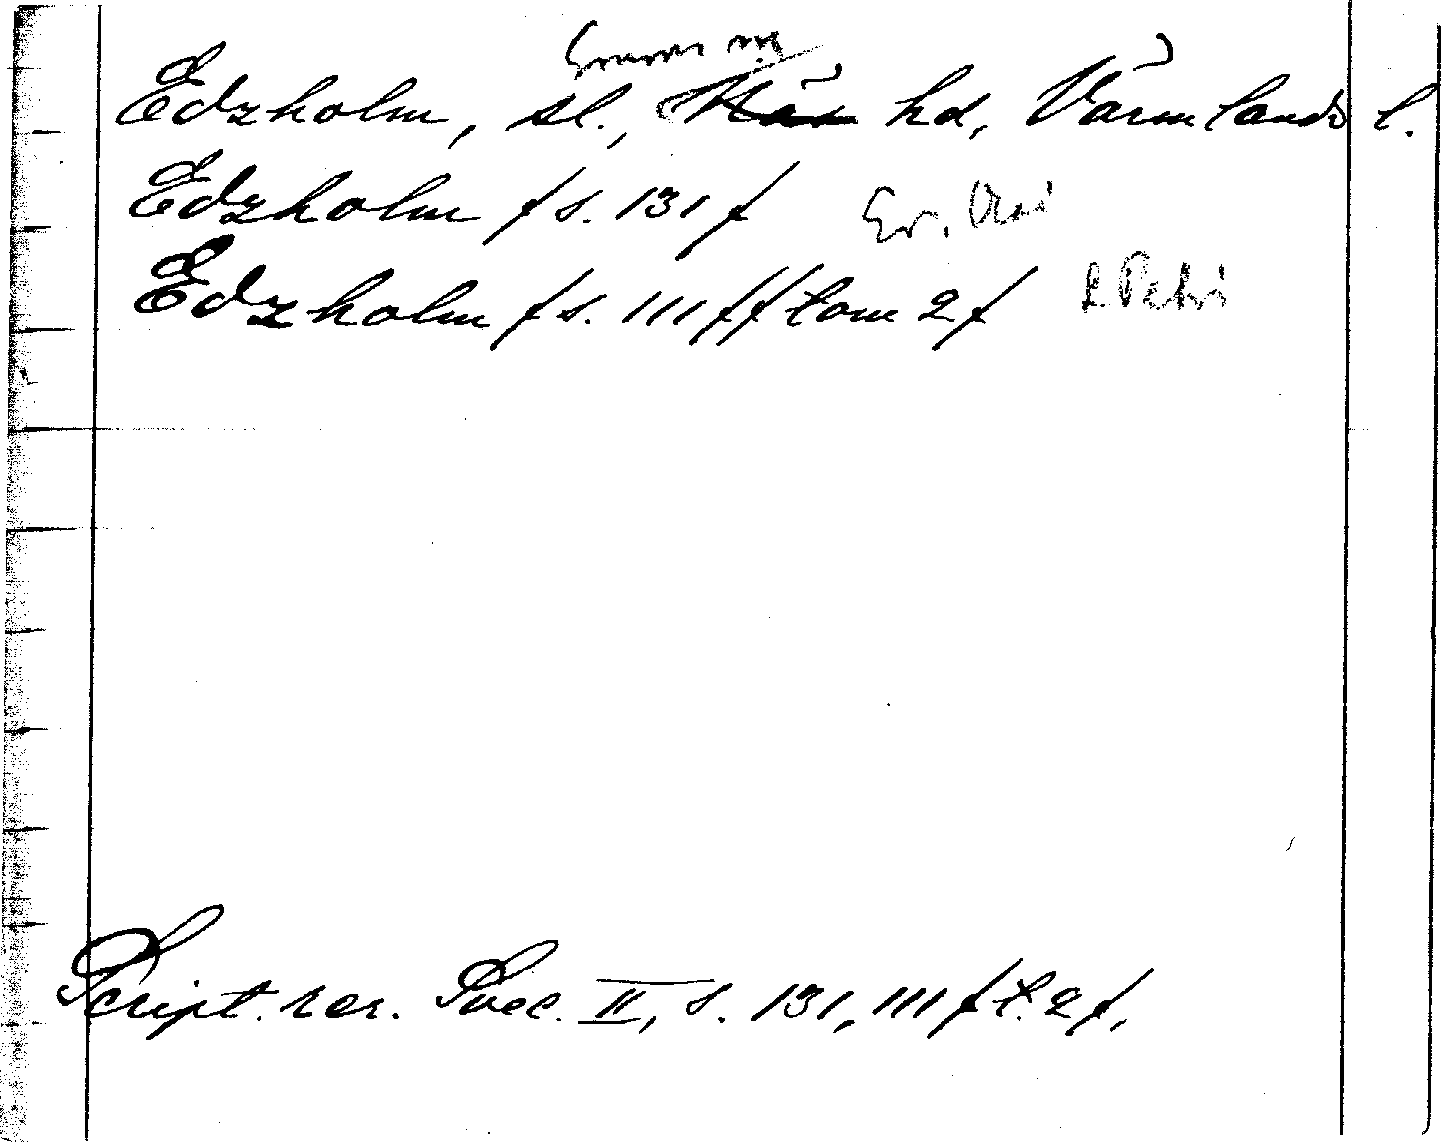 Grums
Edzholm, sl., Näs hd, Värmlands l.
Edzholm /s. 131/ Er. Olai
Edzholm /s. 111 // tom 2/ L Petri
Script. rer. Svec. II, s. 131, 111 / t. 2/.